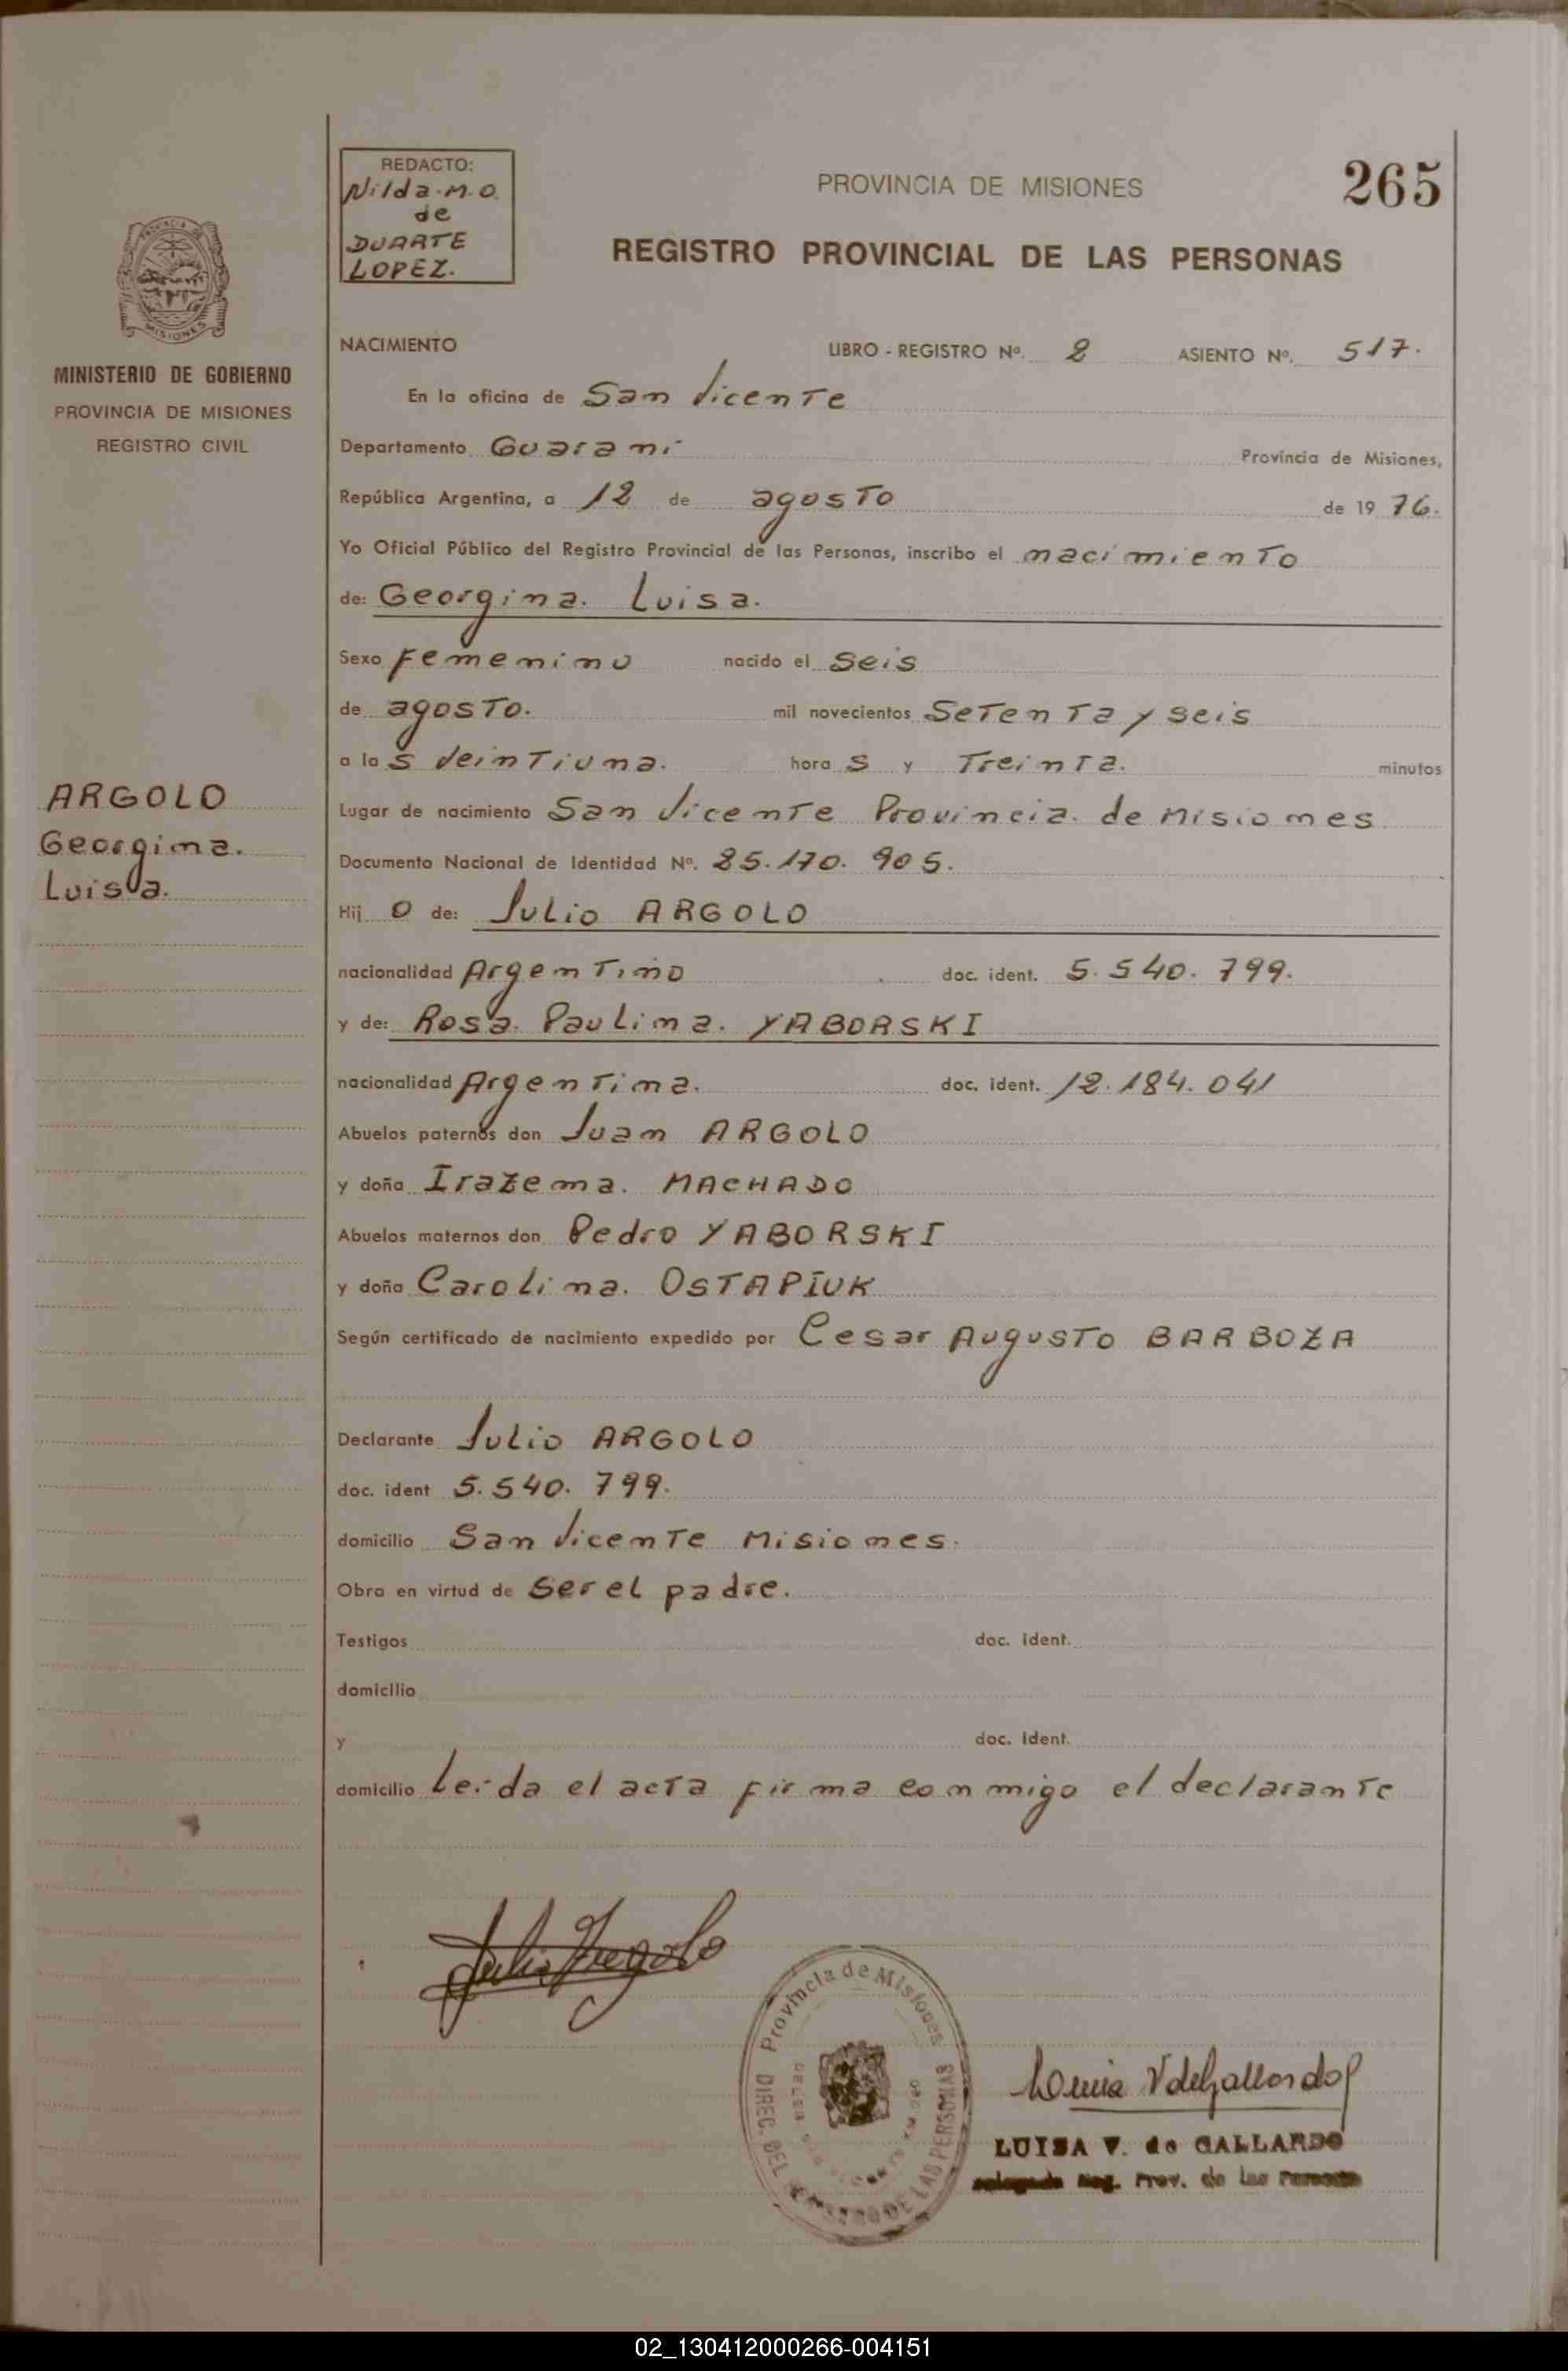 REDACTO:
Nilda M.O.
de
DUARTE
LOPEZ.
PROVINCIA DE MISIONES
265
REGISTRO PROVINCIAL DE LAS PERSONAS
MISIONES
MINISTERIO DE GOBIERNO
PROVINCIA DE MISIONES
REGISTRO CIVIL
ARGOLO
Georgina.
Luisa.
NACIMIENTO LIBRO - REGISTRO Nº. 2 ASIENTO Nº. 517.
En la oficina de San Vicente
Departamento Guaraní Provincia de Misiones,
República Argentina, a 12 de agosto de 19 76.
Yo Oficial Público del Registro Provincial de las Personas, inscribo el nacimiento
de: Georgina. Luisa.
Sexo Femenino nacido el Seis
de agosto. mil novecientos Setenta y seis
a las Veintiuna. horas y Treinta. minutos
Lugar de nacimiento San Vicente Provincia de Misiones
Documento Nacional de Identidad Nº. 25.170.905.
Hijo de: Julio ARGOLO
nacionalidad Argentino doc. ident. 5.540.799.
y de: Rosa Paulina. YABORSKI
nacionalidad Argentina. doc. ident. 12.184.041
Abuelos paternos don Juan ARGOLO
y doña Irazema. MACHADO
Abuelos maternos don Pedro YABORSKI
y doña Carolina. OSTAPIUK
Según certificado de nacimiento expedido por Cesar Augusto BARBOZA
Declarante Julio ARGOLO
doc. ident 5.540.799.
domicilio San Vicente Misiones.
Obra en virtud de Ser el padre.
Testigos doc. ident.
domicilio
y doc. ident.
domicilio Leída el acta firma conmigo el declarante
Julio Argolo
Provincia de Misiones
DIREC. DEL REGISTRO DE LAS PERSONAS
Luisa V de Gallardo
LUISA V. de GALLARDO
Reg. Prov. de las Personas
02_130412000266-004151